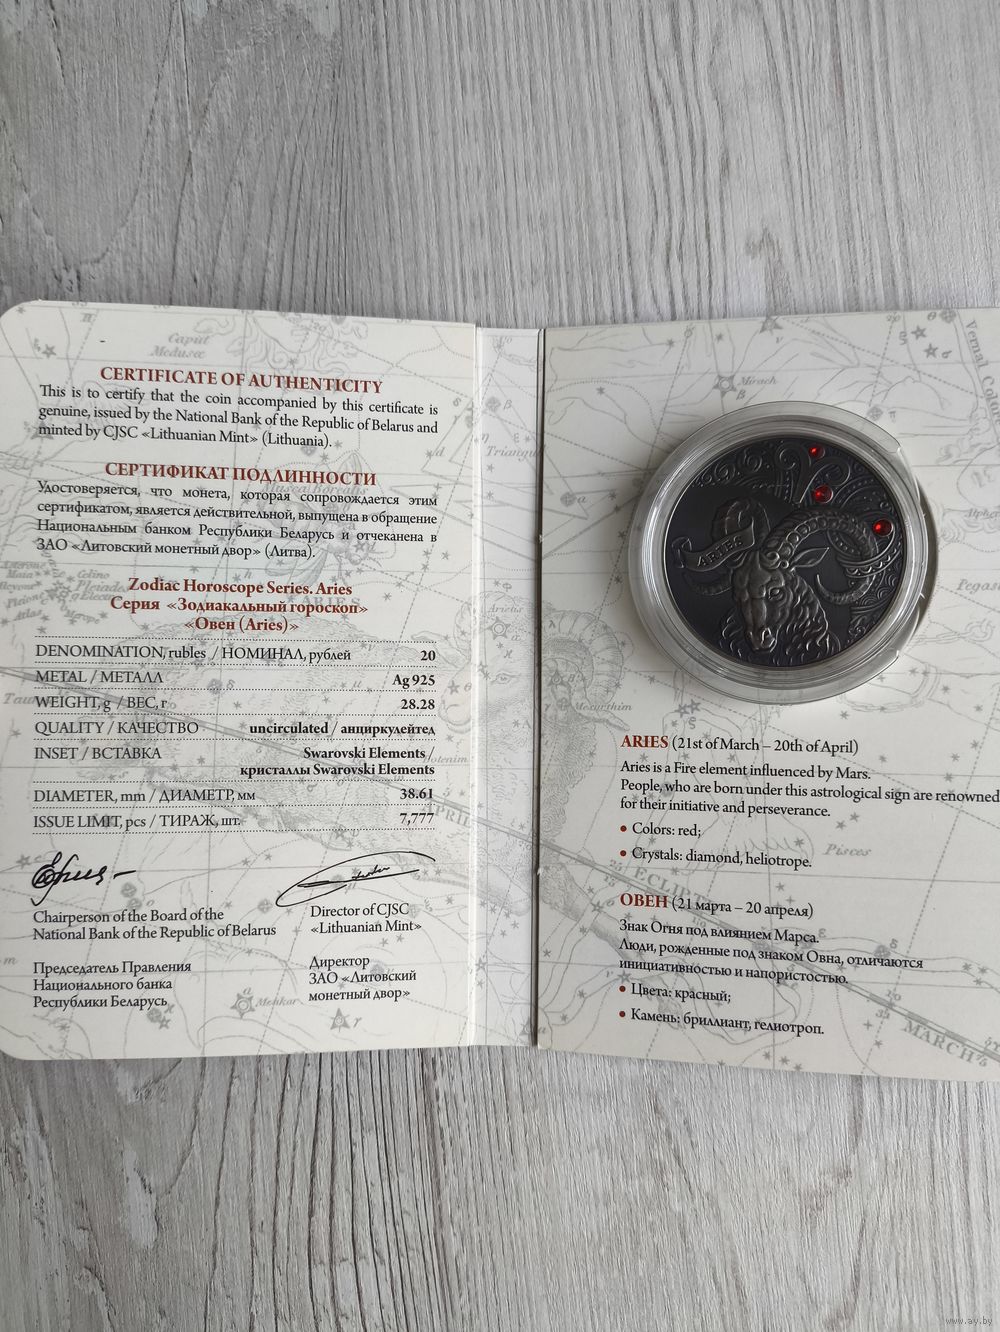 CERTIFICATE OF AUTHENTICITY
This is to certify that the coin accompanied by this certificate is
genuine, issued by the National Bank of the Republic of Belarus and
minted by CJSC «Lithuanian Mint» (Lithuania).
СЕРТИФИКАТ ПОДЛИННОСТИ
Удостоверяется, что монета, которая сопровождается этим
сертификатом, является действительной, выпущена в обращение
Национальным банком Республики Беларусь и отчеканена в
ЗАО «Литовский монетный двор» (Литва).
Zodiac Horoscope Series. Aries
Серия «Зодиакальный гороскоп»
«Овен (Aries)»
DENOMINATION, rubles / НОМИНАЛ, рублей 20
METAL / МЕТАЛЛ Ag 925
WEIGHT, g / ВЕС, г 28.28
QUALITY / КАЧЕСТВО uncirculated / анциркулейтед
INSET / ВСТАВКА Swarovski Elements /
кристаллы Swarovski Elements
DIAMETER, mm / ДИАМЕТР, мм 38.61
ISSUE LIMIT, pcs / ТИРАЖ, шт. 7,777
Chairperson of the Board of the
National Bank of the Republic of Belarus
Director of CJSC
«Lithuanian Mint»
Председатель Правления
Национального банка
Республики Беларусь
Директор
ЗАО «Литовский
монетный двор»
Caput
Medusee
ARIES
Mirach
Vernal
Pisces
ECLIP
APRIL
MARCH
Menkar
ARIES
ARIES (21st of March – 20th of April)
Aries is a Fire element influenced by Mars.
People, who are born under this astrological sign are renowned
for their initiative and perseverance.
• Colors: red;
• Crystals: diamond, heliotrope.
ОВЕН (21 марта – 20 апреля)
Знак Огня под влиянием Марса.
Люди, рожденные под знаком Овна, отличаются
инициативностью и напористостью.
• Цвета: красный;
• Камень: бриллиант, гелиотроп.
www.ay.by